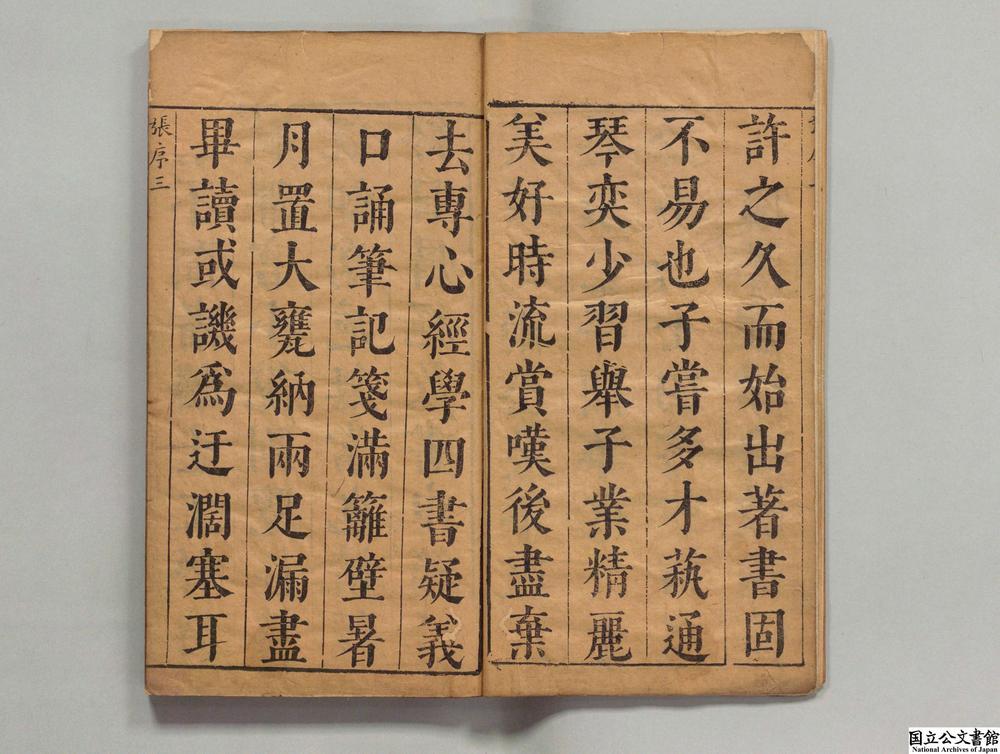 許之久而始出著書固
不易也子嘗多才蓺通
琴奕少習舉子業精麗
美好時流賞嘆後盡棄
去專心經學四書疑義
口誦筆記箋滿籬壁暑
月置大甕納兩足漏盡
畢讀或譏爲迂濶塞耳
張序三
国立公文書館
National Archives of Japan